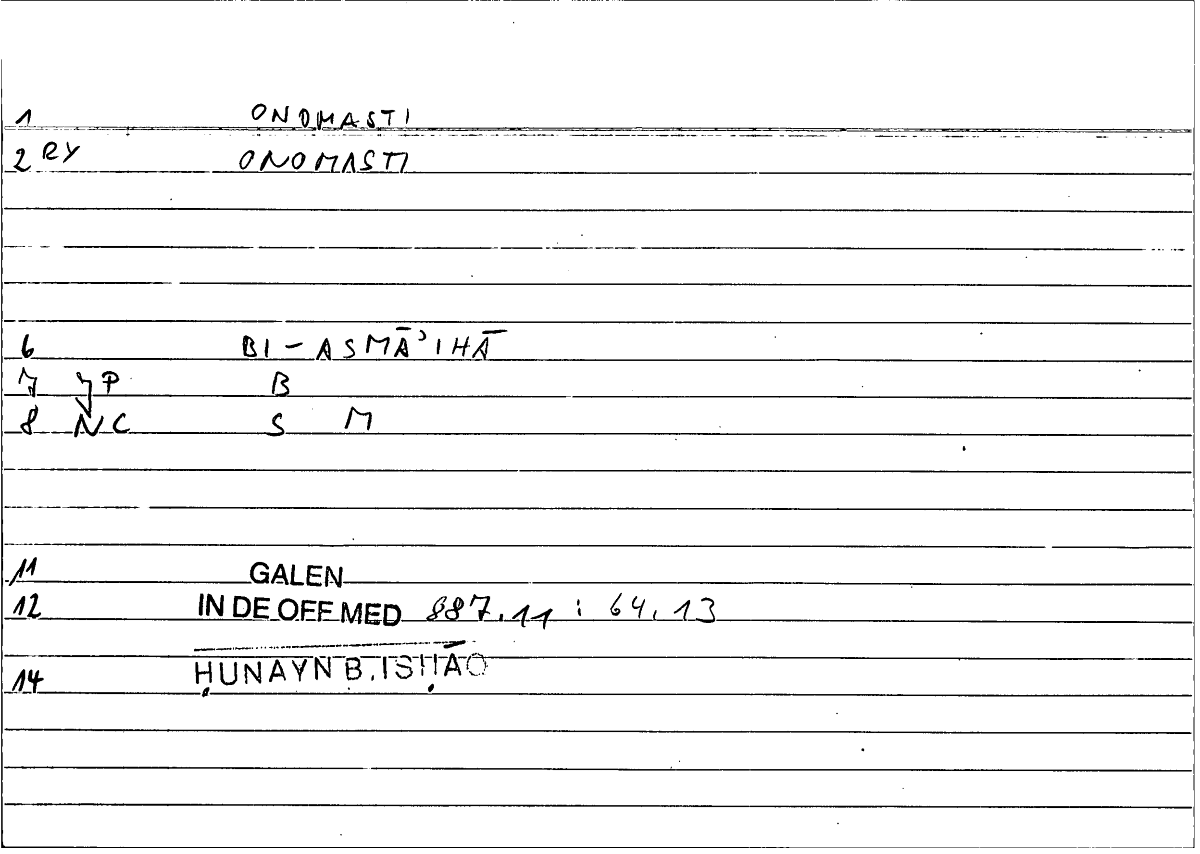 1 ONOMASTI
2 RY ONOMASTI
6 BI – ASMĀʾIHĀ
7 P B
8 NC S M
11 GALEN
12 IN DE OFF MED 887.11 : 64.13
14 ḤUNAYN B. ISḤĀQ